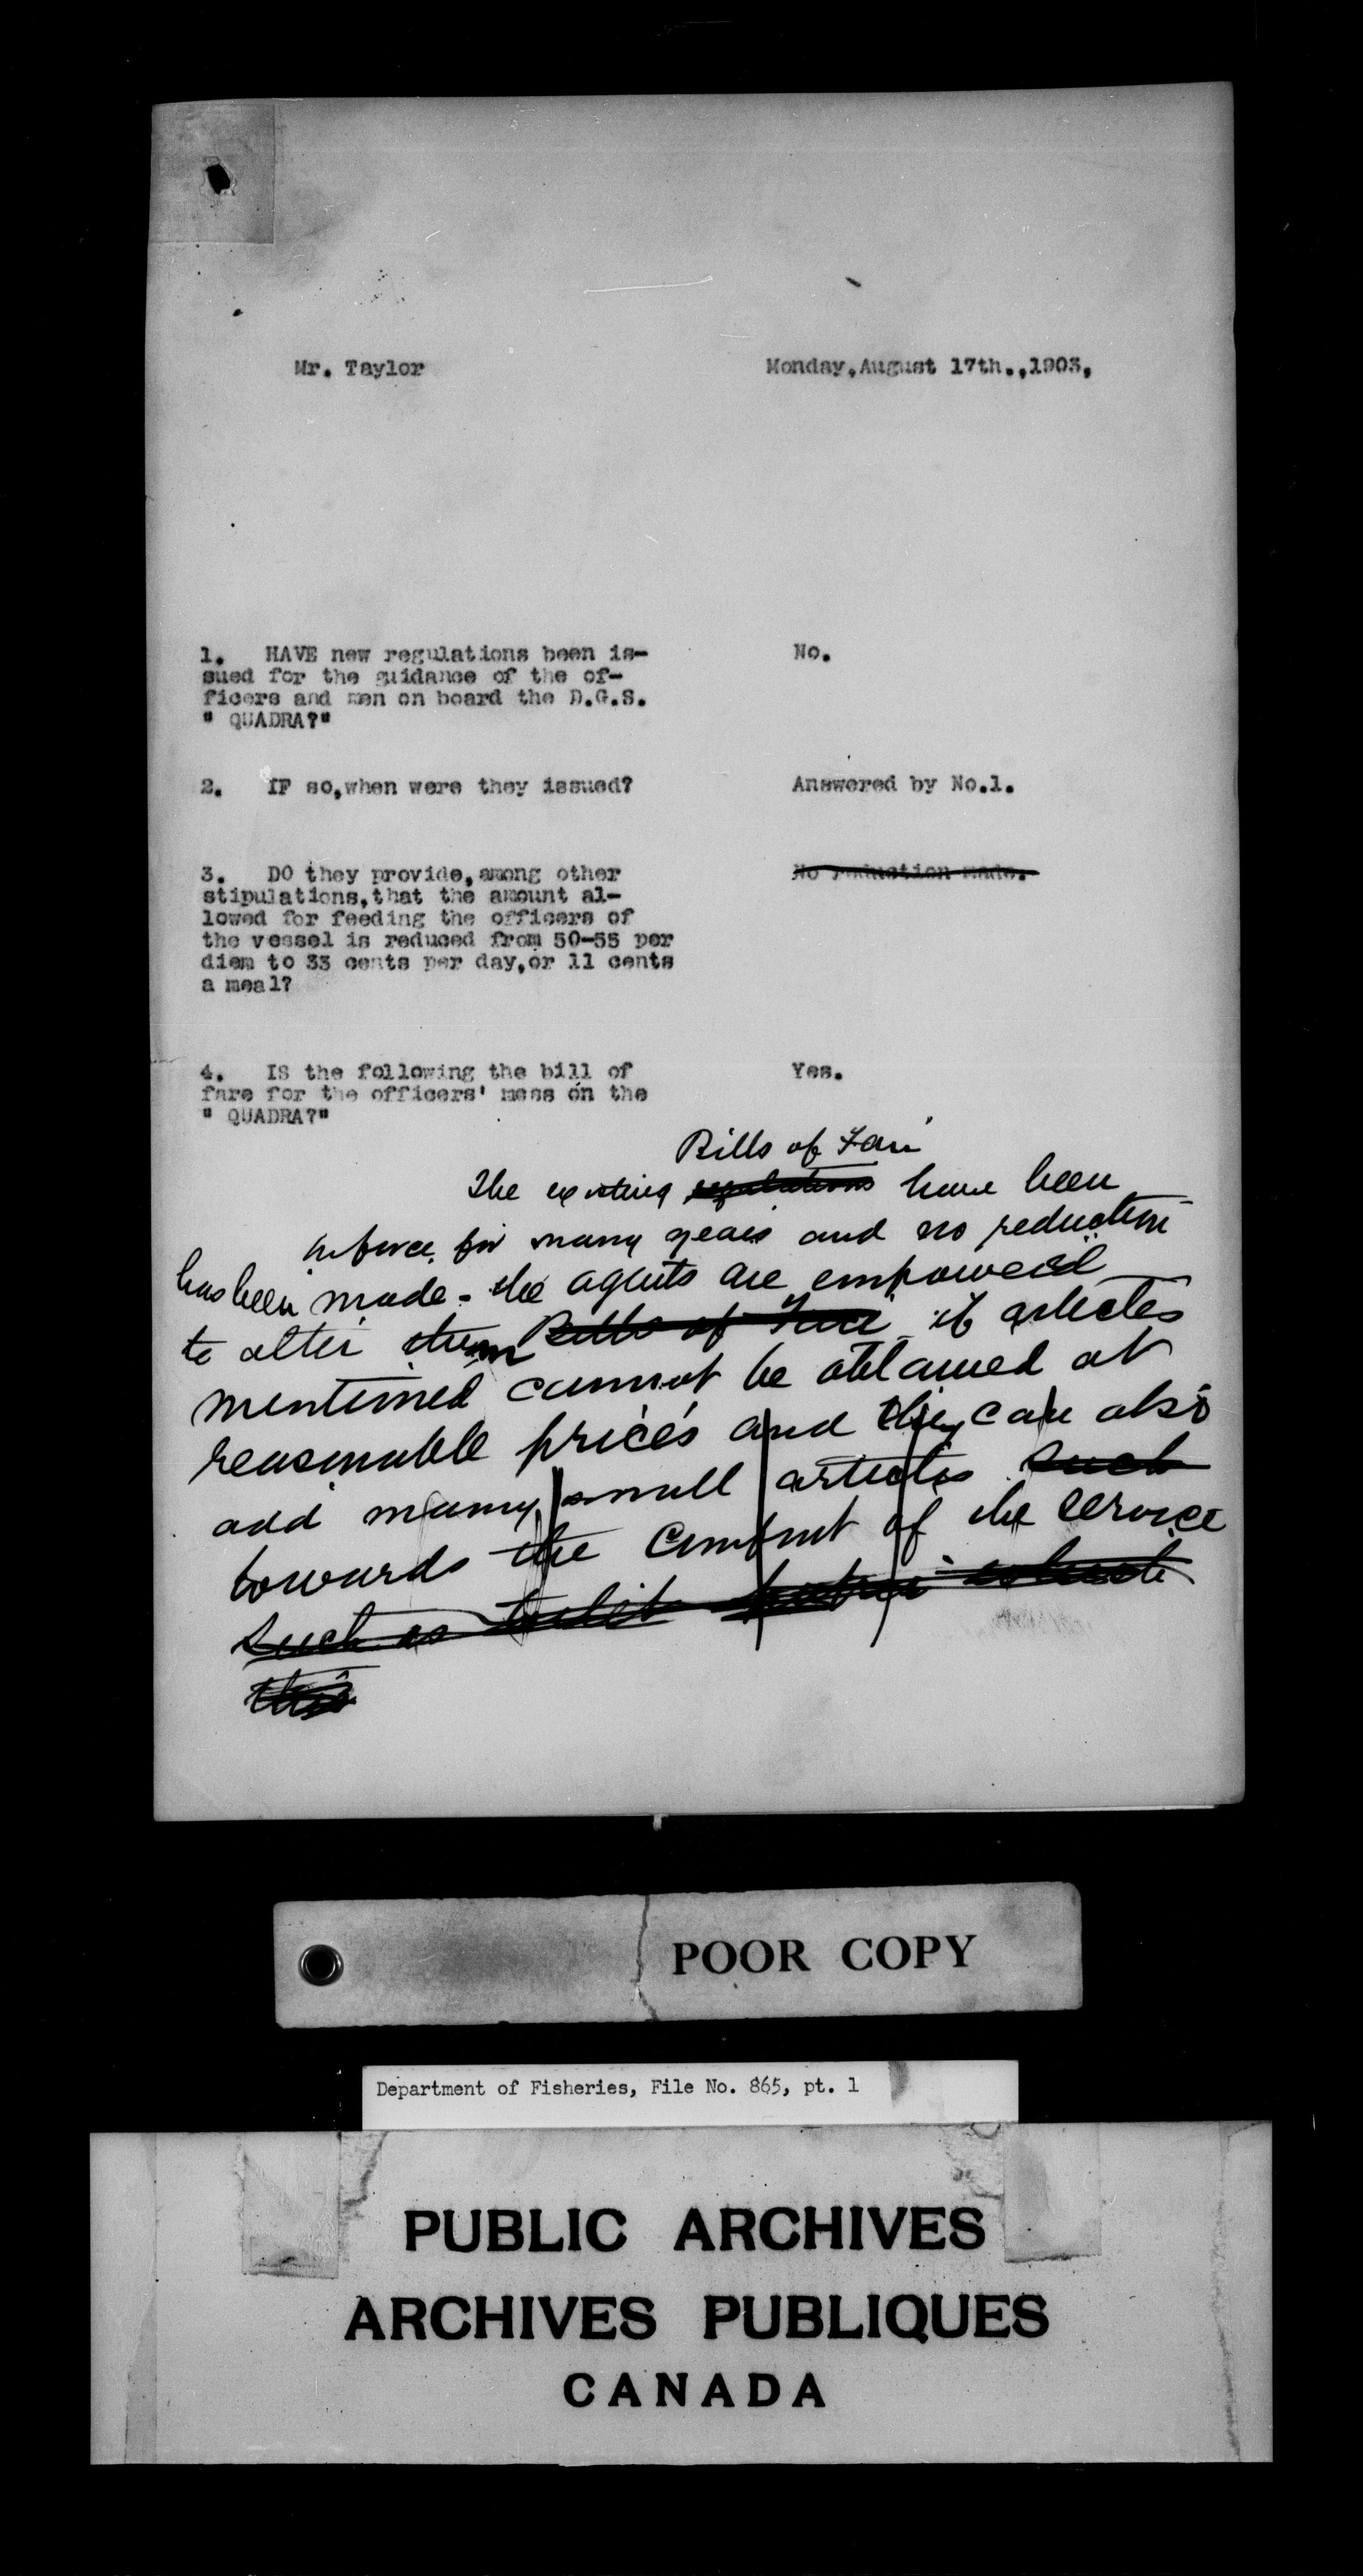 Mr. Taylor
Monday,August 17th.,1903,
1. HAVE new regulations been is-
sued for the guidance of the of-
ficers and men on board the D.G.S.
" QUADRA?"
No.
2. IF so,when were they issued?
Answered by No.1.
3. DO they provide,among other
stipulations,that the amount al-
lowed for feeding the officers of
the vessel is reduced from 50-55 per
diem to 33 cents per day,or 11 cents
a meal?
No reduction made.
4. IS the following the bill of
fare for the officers' mess on the
" QUADRA?"
Yes.
Bills of Fare
The existing regulations have been
in force for many years and no reduction
has been made - the agents are empowered
to alter them Bills of Fare if articles
mentioned cannot be obtained at
reasonable prices and they can also
add many small articles such
towards the comfort of the service
such as
this
POOR COPY
Department of Fisheries, File No. 865, pt. 1
PUBLIC ARCHIVES
ARCHIVES PUBLIQUES
CANADA